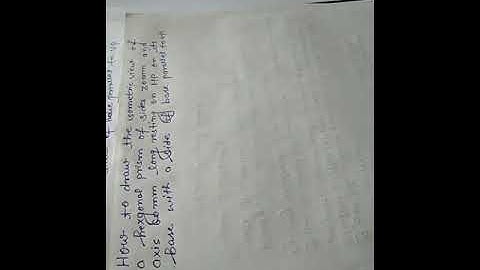 of base parallel to VP
How to draw the isometric view of
a hexgonal prism of sides 20mm and
axis 60mm long resting on HP on its
base with a side of base parallel to VP